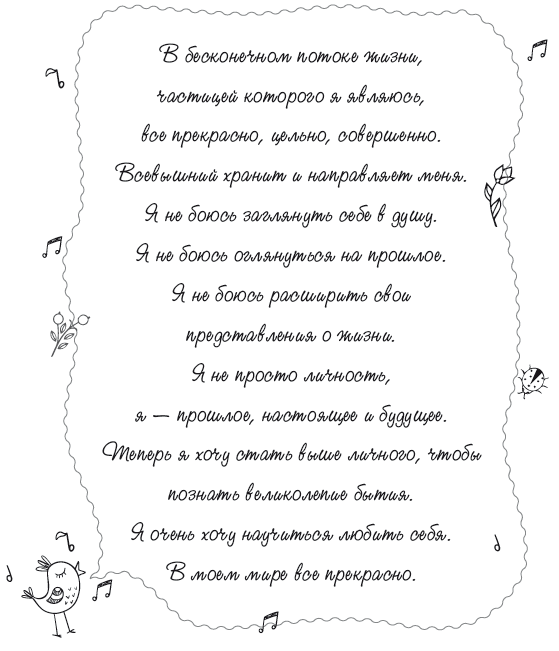 В бесконечном потоке жизни,
частицей которого я являюсь,
все прекрасно, цельно, совершенно.
Всевышний хранит и направляет меня.
Я не боюсь заглянуть себе в душу.
Я не боюсь оглянуться на прошлое.
Я не боюсь расширить свои
представления о жизни.
Я не просто личность,
я — прошлое, настоящее и будущее.
Теперь я хочу стать выше личного, чтобы
познать великолепие бытия.
Я очень хочу научиться любить себя.
В моем мире все прекрасно.